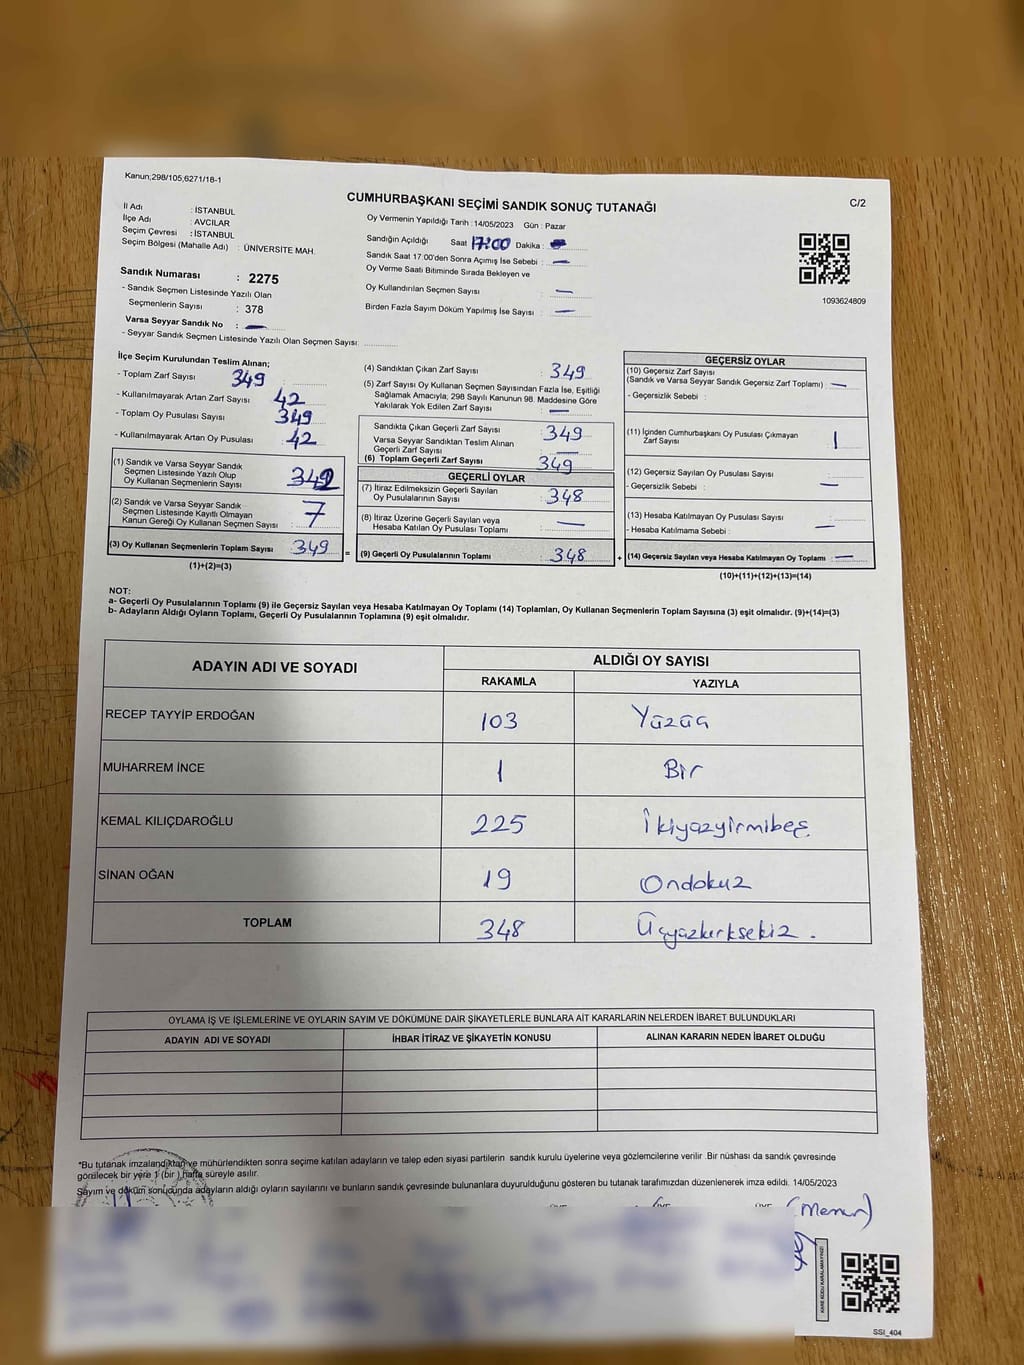 Kanun;298/105,6271/18-1
CUMHURBAŞKANI SEÇİMİ SANDIK SONUÇ TUTANAĞI
C/2
İl Adı : İSTANBUL
İlçe Adı : AVCILAR
Seçim Çevresi : İSTANBUL
Seçim Bölgesi (Mahalle Adı) : ÜNİVERSİTE MAH.
Sandık Numarası : 2275
- Sandık Seçmen Listesinde Yazılı Olan
Seçmenlerin Sayısı : 378
Varsa Seyyar Sandık No :
- Seyyar Sandık Seçmen Listesinde Yazılı Olan Seçmen Sayısı:
Oy Vermenin Yapıldığı Tarih :14/05/2023 Gün : Pazar
Sandığın Açıldığı Saat 17:00 Dakika :
Sandık Saat 17.00'den Sonra Açımış İse Sebebi : —
Oy Verme Saati Bitiminde Sırada Bekleyen ve
Oy Kullandırılan Seçmen Sayısı : —
Birden Fazla Sayım Döküm Yapılmış İse Sayısı : —
1093624809
İlçe Seçim Kurulundan Teslim Alınan;
- Toplam Zarf Sayısı : 349
- Kullanılmayarak Artan Zarf Sayısı : 42
- Toplam Oy Pusulası Sayısı : 349
- Kullanılmayarak Artan Oy Pusulası : 42
(1) Sandık ve Varsa Seyyar Sandık
Seçmen Listesinde Yazılı Olup
Oy Kullanan Seçmenlerin Sayısı : 342
(2) Sandık ve Varsa Seyyar Sandık
Seçmen Listesinde Kayıtlı Olmayan
Kanun Gereği Oy Kullanan Seçmen Sayısı : 7
(3) Oy Kullanan Seçmenlerin Toplam Sayısı : 349 =
(1)+(2)=(3)
(4) Sandıktan Çıkan Zarf Sayısı : 349
(5) Zarf Sayısı Oy Kullanan Seçmen Sayısından Fazla İse, Eşitliği
Sağlamak Amacıyla, 298 Sayılı Kanunun 98. Maddesine Göre
Yakılarak Yok Edilen Zarf Sayısı : —
Sandıkta Çıkan Geçerli Zarf Sayısı : 349
Varsa Seyyar Sandıktan Teslim Alınan
Geçerli Zarf Sayısı : —
(6) Toplam Geçerli Zarf Sayısı : 349
GEÇERLİ OYLAR
(7) İtiraz Edilmeksizin Geçerli Sayılan
Oy Pusulalarının Sayısı : 348
(8) İtiraz Üzerine Geçerli Sayılan veya
Hesaba Katılan Oy Pusulası Toplamı : —
(9) Geçerli Oy Pusulalarının Toplamı : 348 +
GEÇERSİZ OYLAR
(10) Geçersiz Zarf Sayısı
(Sandık ve Varsa Seyyar Sandık Geçersiz Zarf Toplamı) : —
- Geçersizlik Sebebi :
(11) İçinden Cumhurbaşkanı Oy Pusulası Çıkmayan
Zarf Sayısı : 1
(12) Geçersiz Sayılan Oy Pusulası Sayısı
- Geçersizlik Sebebi : —
(13) Hesaba Katılmayan Oy Pusulası Sayısı :
- Hesaba Katılmama Sebebi : —
(14) Geçersiz Sayılan veya Hesaba Katılmayan Oy Toplamı : —
(10)+(11)+(12)+(13)=(14)
NOT:
a- Geçerli Oy Pusulalarının Toplamı (9) ile Geçersiz Sayılan veya Hesaba Katılmayan Oy Toplamı (14) Toplamları, Oy Kullanan Seçmenlerin Toplam Sayısına (3) eşit olmalıdır. (9)+(14)=(3)
b- Adayların Aldığı Oyların Toplamı, Geçerli Oy Pusulalarının Toplamına (9) eşit olmalıdır.
ADAYIN ADI VE SOYADI ALDIĞI OY SAYISI
RAKAMLA YAZIYLA
RECEP TAYYİP ERDOĞAN 103
MUHARREM İNCE 1 Bir
KEMAL KILIÇDAROĞLU 225 İkiyüzyirmibeş
SİNAN OĞAN 19 Ondokuz
TOPLAM 348 Üçyüzkırksekiz.
OYLAMA İŞ VE İŞLEMLERİNE VE OYLARIN SAYIM VE DÖKÜMÜNE DAİR ŞİKAYETLERLE BUNLARA AİT KARARLARIN NELERDEN İBARET BULUNDUKLARI
ADAYIN ADI VE SOYADI İHBAR İTİRAZ VE ŞİKAYETİN KONUSU ALINAN KARARIN NEDEN İBARET OLDUĞU
*Bu tutanak imzalandıktan ve mühürlendikten sonra seçime katılan adayların ve talep eden siyasi partilerin sandık kurulu üyelerine veya gözlemcilerine verilir .Bir nüshası da sandık çevresinde
görülecek bir yere 1 (bir ) hafta süreyle asılır.
Sayım ve döküm sonucunda adayların aldığı oyların sayılarını ve bunların sandık çevresinde bulunanlara duyurulduğunu gösteren bu tutanak tarafımızdan düzenlenerek imza edildi. 14/05/2023
(Memur)
SSİ_404